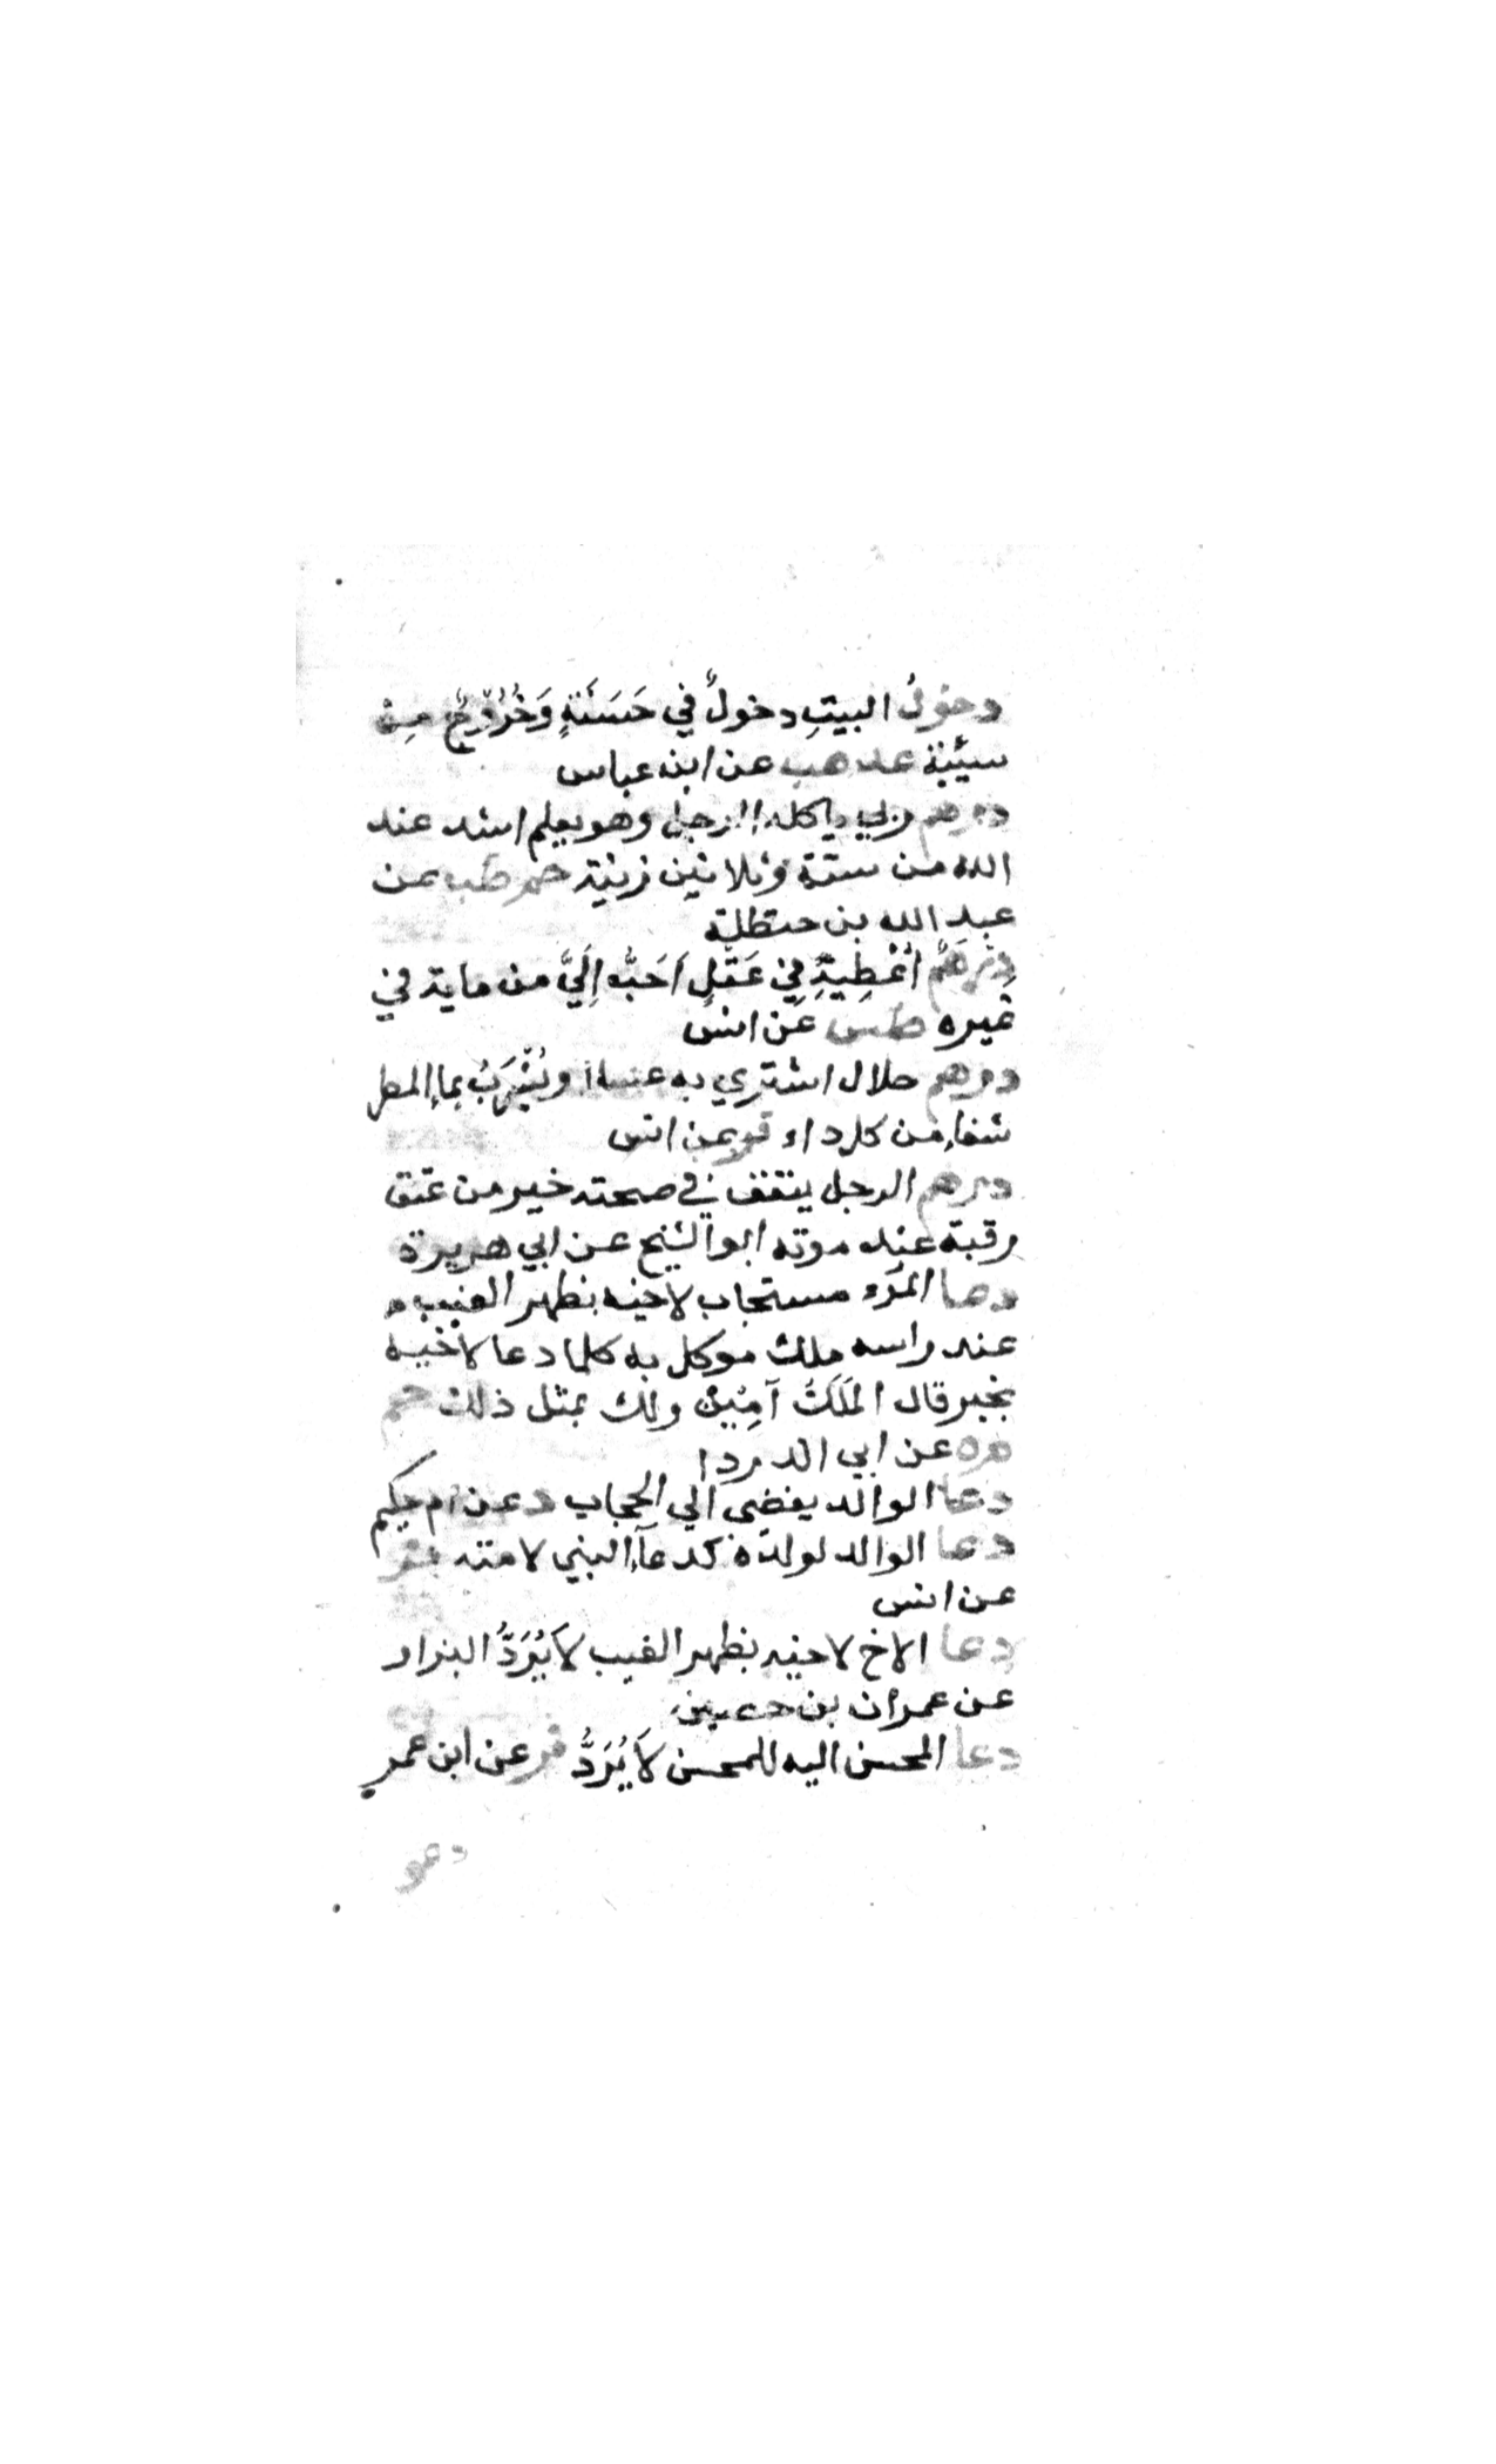 دخولُ البيتِ دخولٌ في حَسَنَةٍ وَخُرُوْجٌ مِن
سيئة عد هب عن ابن عباس
درهم ربي ياكله الرجل وهو يعلم اشد عند
الله من ستة وثلاثين زنية حم طب عن
عبد الله بن حنظلة
دِرهَمٌ أُعْطِيهِ في عَقلٍ اَحَبُّ اِلَيَّ من ماية في
غيره طس عن انس
درهم حلال اشتري به عسلا ويُشْرَبُ بماء المطر
شفاء من كل داء فر عن انس
درهم الرجل ينفق في صحته خير من عتق
رقبة عند موته ابو الشيخ عن ابي هريرة
دعا المرء مستجاب لاخيه بظهر الغيب
عند راسه ملك موكل به كلما دعا لاخيه
بخير قال المَلَكُ آمِيْن ولك بمثل ذلك حم
م ه عن ابي الدردا
دعا الوالد يفضى الي الحجاب ه عن ام حكيم
دعا الوالد لولده كدعآء النبي لامته فر
عن انس
دعا الاخ لاخيه بظهر الغيب لاَيُرَدُّ البزار
عن عمران بن حصين
دعا المحسن اليه للمحسن لاَ يُرَدُّ فر عن ابن عمر
دعو